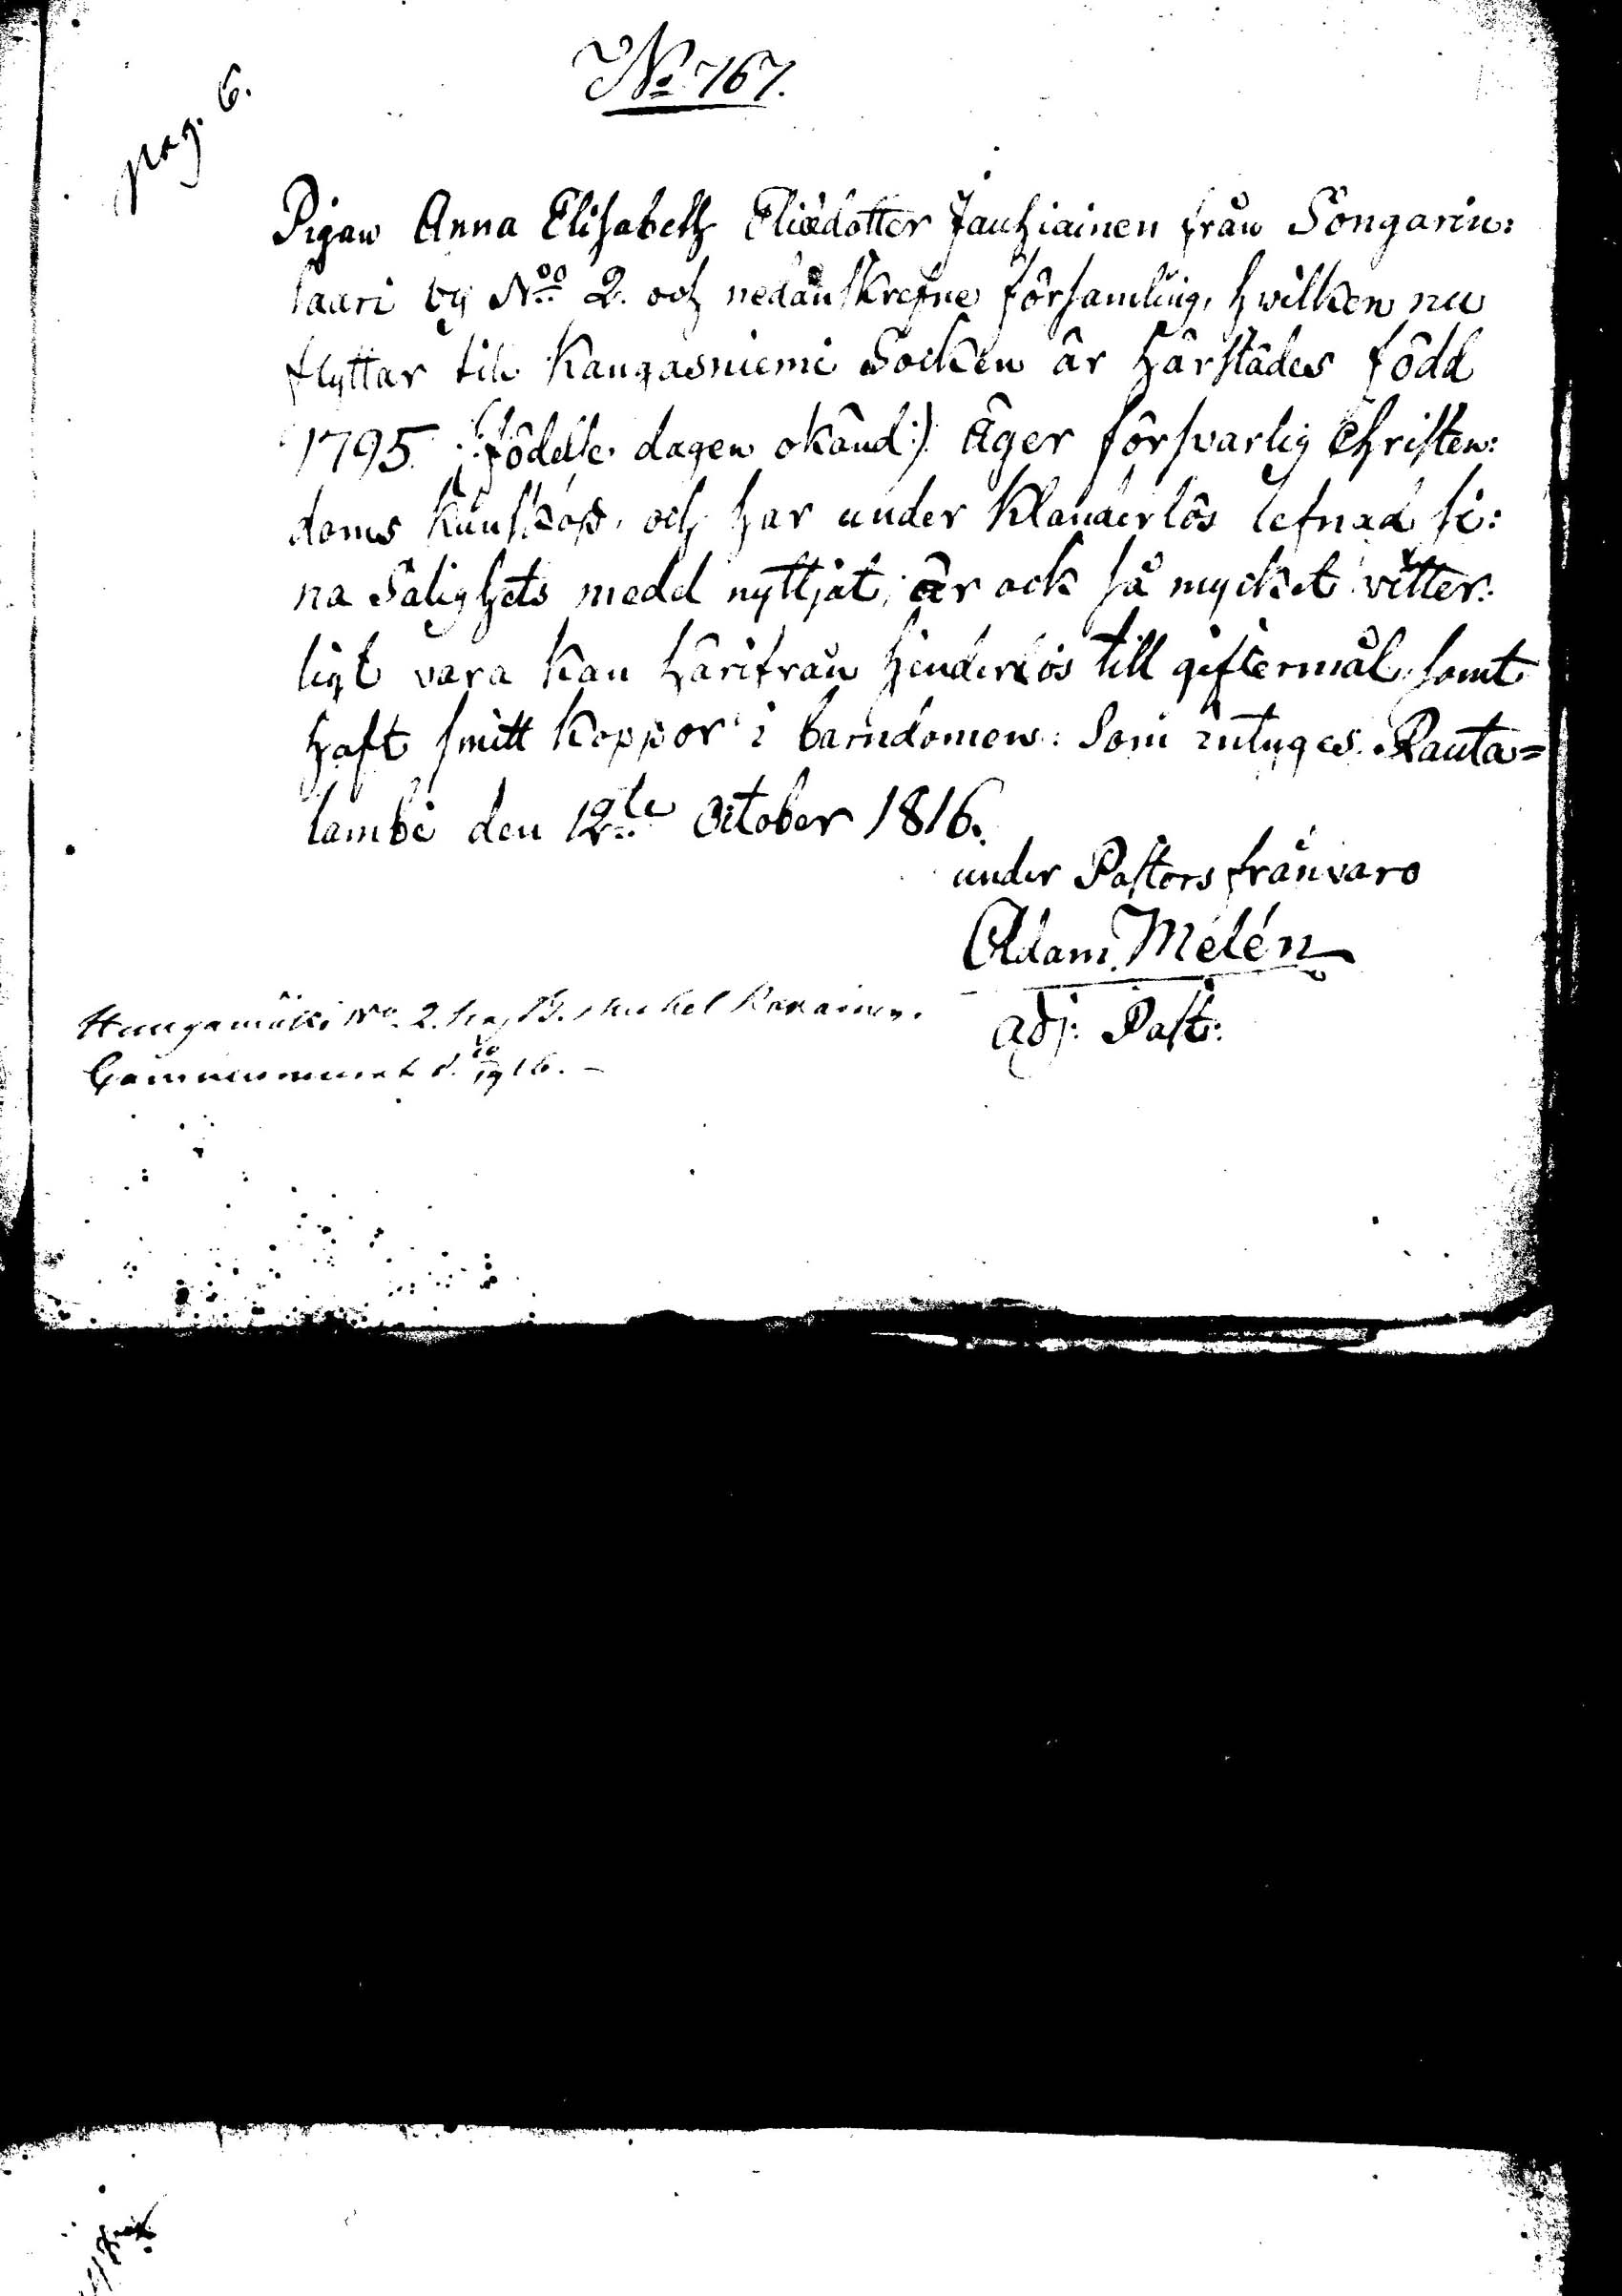 No 767.
pag. 6.
Pigan Anna Elisabeth Eliædotter Jauhiainen från Songarin:
saari by No 2. och nedanskrefne församling, hvilken nu
flyttar till Kangasniemi Socken är härstädes född
1795. (:födelse dagen okänd:) Äger försvarlig Christen:
doms kunskap, och har under klanderlös lefnad si:
na Salighets medel nyttjat; är ock så mycket vitter:
ligt vara kan härifrån hinderlös till giftermål, samt
haft smitt koppor i barndomen: Som intygas. Rauta=
lambi den 12te October 1816.
under Pastors frånvaro
Adam Melén
Adj: Past:
No 2. hos B. Mickel
d. 20/19 16.